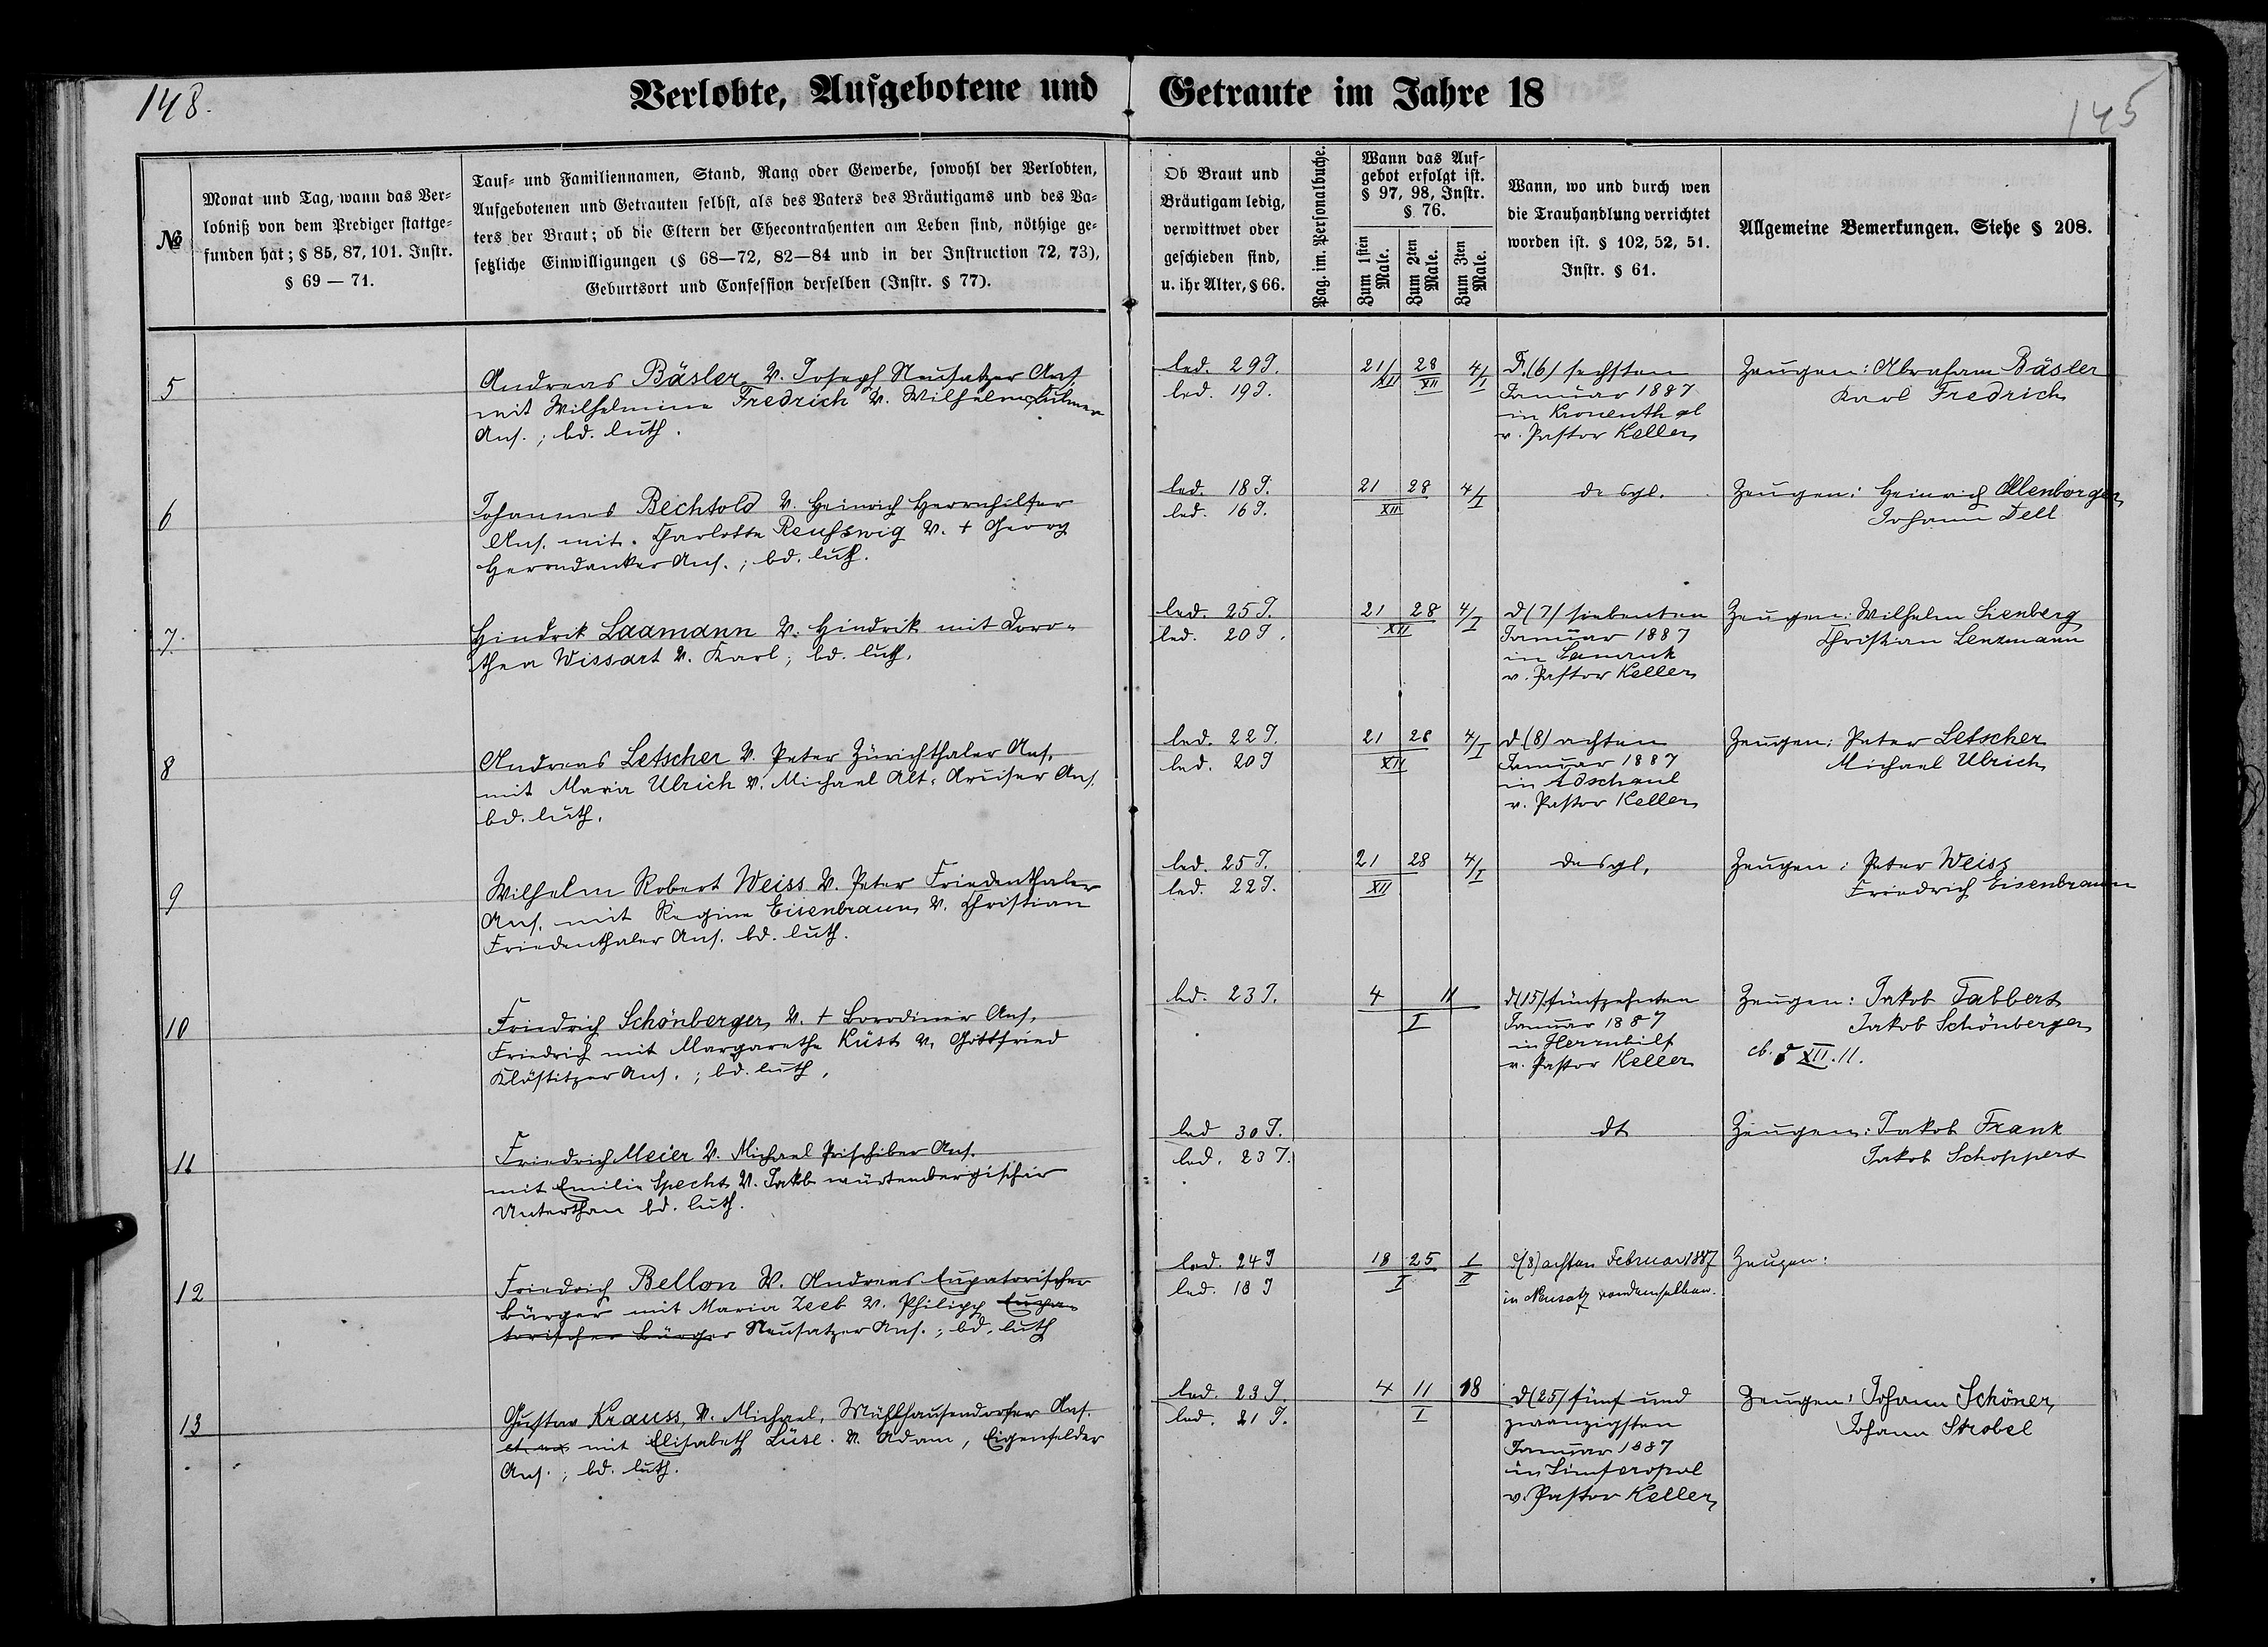 148.
Verlobte, Aufgebotene und Getraute im Jahre 18
145
№
Monat und Tag, wann das Ver-
lobniß von dem Prediger stattge-
funden hat; § 85, 87, 101. Instr.
§ 69 — 71.
Tauf- und Familiennamen, Stand, Rang oder Gewerbe, sowohl der Verlobten,
Aufgebotenen und Getrauten selbst, als des Vaters des Bräutigams und des Va-
ters der Braut; ob die Eltern der Ehecontrahenten am Leben sind, nöthige ge-
setzliche Einwilligungen (§ 68—72, 82—84 und in der Instruction 72, 73),
Geburtsort und Confession derselben (Instr. § 77).
Ob Braut und
Bräutigam ledig,
verwittwet oder
geschieden sind,
u. ihr Alter, § 66.
Pag. im. Personalbuche.
Wann das Auf-
gebot erfolgt ist.
§ 97, 98, Instr.
§ 76.
Zum 1sten
Male.
Zum 2ten
Male.
Zum 3ten
Male.
Wann, wo und durch wen
die Trauhandlung verrichtet
worden ist. § 102, 52, 51.
Instr. § 61.
Allgemeine Bemerkungen. Siehe § 208.
5
Andreas Bäsler V. Joseph Neusatzer Ans.
mit Wilhelmine Fredrich V. Wilhelm
Ans.; bd. luth.
led. 29 J.
led. 19 J.
21/XII 28/XII 4/I
(6) sechsten
Januar 1887
in Kronenthal
v. Pastor Keller
Zeugen: Abraham Bäsler
Karl Fredrich
6
Johannes Bechtold V. Heinrich Herrnhilfer
Ans. mit Charlotte V. + Georg
Ans.; bd. luth.
led. 18 J.
led. 16 J.
21 28 4/I
XII
desgl.
Zeugen: Heinrich
Johann Dell
7.
Hindrik Laamann V. Hindrik mit Doro-
thea Wissart V. Karl; bd. luth.
led. 25 J.
led. 20 J.
21 28 4/I
XII
d (7) siebenten
Januar 1887
in
v. Pastor Keller
Zeugen: Wilhelm Sienberg
Christian Lenzmann
8
Andreas Letscher V. Peter Zürichthaler Ans.
mit Maria Ulrich V. Michael Alt- Ans.
bd. luth.
led. 22 J.
led. 20 J
21 28 4/I
XII
d (8) achten
Januar 1887
in Adschaul
v. Pastor Keller
Zeugen: Peter Letscher
Michael Ulrich
9
Wilhelm Robert Weiss V. Peter Friedenthaler
Ans. mit Regina Eisenbraun V. Christian
Friedenthaler Ans. bd. luth.
led. 25 J.
led. 22 J.
21 28 4/I
XII
desgl.
Zeugen: Peter Weiss
Friedrich Eisenbraun
10
Friedrich Schönberger V. + Borodiner Ans.
Friedrich mit Margarethe Küst V. Gottfried
Klöstitzer Ans.; bd. luth.
led. 23 J.
4 11
I
d (15) fünfzehnten
Januar 1887
in Herrnhilf
v. Pastor Keller
Zeugen: Jakob Tabbert
Jakob Schönberger
XII. 11.
11
Friedrich Meier V. Michael Prischiber Ans.
mit Emilie Specht V. Jakob würtembergischer
Unterthan bd. luth.
led 30 J.
led. 23 J.
dt
Zeugen: Jakob Frank
Jakob Schoppert
12
Friedrich Bellon V. Andreas Eupatorischer
Bürger mit Maria Zeeb V. Philipp Eupa-
torischer Bürger Neusatzer Ans.; bd. luth
led. 24 J
led. 18 J
18 25 1
I II
d (8) achten Februar 1887
in Neusatz von demselben.
Zeugen:
13
Gustav Krauss, V. Michael, Mühlhausendorfer Ans.
mit Elisabeth Lüse. V. Adam, Eigenfelder
Ans.; bd. luth.
led. 23 J.
led. 21 J.
4 11 18
I
d (25) fünf und
zwanzigsten
Januar 1887
in Simferopol
v. Pastor Keller
Zeugen: Johann Schöner
Johann Strobel